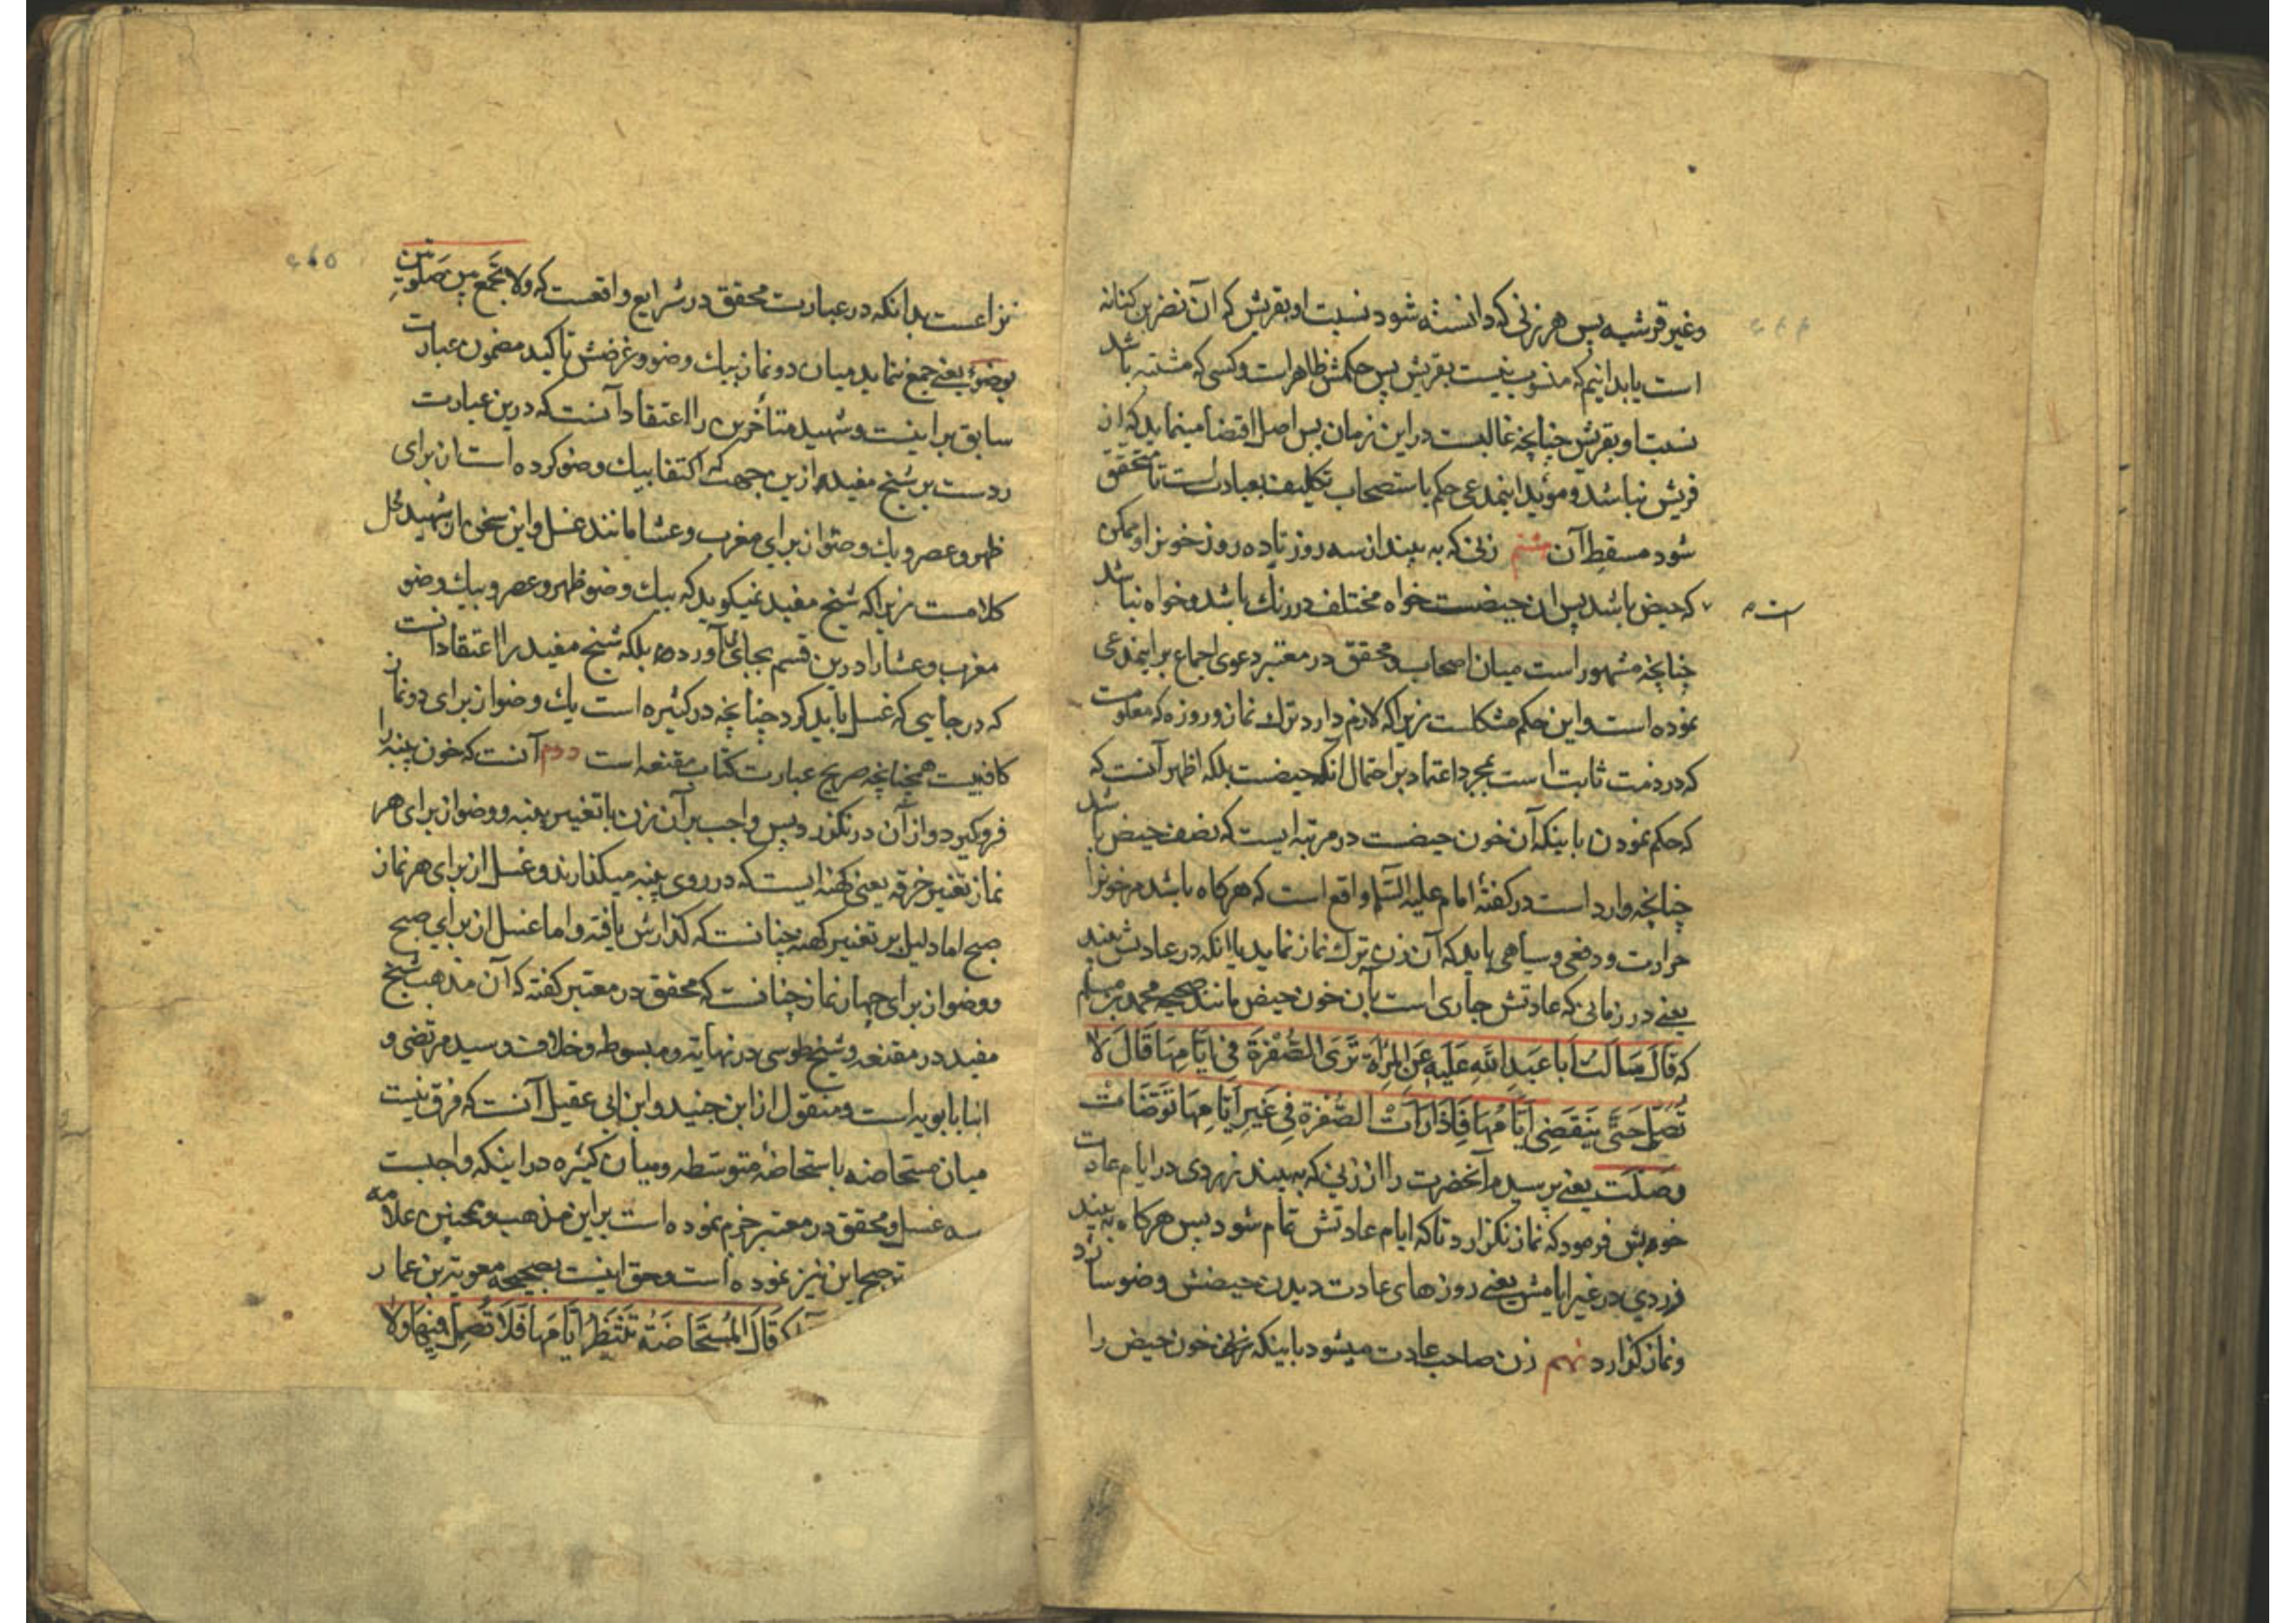 وغیر قرشیه پس هر زنی که دانسته شود نسبت او بقریش که آن نضر بن کنانه
است یا بدانیم که منسوب نیست بقریش پس حکمش ظاهر است و کسی که مشتبه باشد
نسبت او بقریش چنانچه غالبست در این زمان پس اصل اقتضا مینماید که از
قریش نباشد و مؤید اینمدعی حکم باستصحاب تکلیف بعبادتست تا متحقق
شود مسقط آن هشتم زنی که به بیند از سه روز تا ده روز خونرا و ممکن
که حیض باشد پس آن حیضست خواه مختلف در رنک باشد و خواه نباشد
چنانچه مشهور است میان اصحاب و محقق در معتبر دعوی اجماع بر اینمدعی
نموده است و این حکم مشکلست زیرا که لازم دارد ترک نماز و روزه که معلومست
که در ذمت ثابت است بمجرد اعتماد بر احتمال انکه حیضست بلکه اظهر آنست که
که حکم نمودن باینکه آن خون حیضست در مرتبه ایست که بصفت حیض باشد
چنانچه وارد است در کفتهٔ امام علیه السلم واقع است که هرکاه باشد مر خونرا
حرارت و دفعی و سیاهی باید که آن زن ترک نماز نماید یا انکه در عادتش بیند
یعنی در زمانی که عادتش جاری است بآن خون حیض مانند صحیحه محمد بن مسلم
که قَالَ سَالَتُ اَبا عَبدِ اللهِ عَلَیهِ عَنِ المَرأَهِ تَرَی الصُّفْرَةَ فی اَیّامِهَا قَالَ لَا
تُصَلّ حَتَّی یَنقَضِی اَیّامُهَا فَاِذَا رَاَتْ الصُّفرَةَ فِی غَیرِ اَیّامِهَا تَوَضَّاَتْ
وَصَلَّت یعنی پرسیدم آنحضرت را از زنی که به بیند زردی در ایام عادت
خویش فرمود که نماز نکزارد تا که ایام عادتش تمام شود پس هرکاه به بیند
زردی در غیر ایامش یعنی روزهای عادت دیدن حیضش وضو سازد
و نماز کزارد نهم زن صاحب عادت میشود باینکه خون حیض را
نزاعست بدانکه در عبارت محقق در شرایع واقعست که ولا تجمع بین صلوتین
بوضوء یعنی جمع ننماید میان دو نماز بیک وضو و غرضش تاکید مضمون عبارت
سابق بر اینست و شهید متأخرین را اعتقاد آنست که درین عبارت
ردست بر شیخ مفید از ین جهت که اکتفا بیک وضو کرده است از برای
ظهر و عصر و یک وضو از برای مغرب و عشا مانند غسل و این سخن از شهید محل
کلامست زیرا که شیخ مفید نمیکوید که بیک وضو ظهر و عصر و بیک وضو
مغرب و عشا را درین قسم بجای آورده بلکه شیخ مفید را اعتقاد آنست
که در جایی که غسل باید کرد چنانچه در کثیره است یک وضو از برای دو نماز
کافیست همچنانچه صریح عبارت کتاب مقنعه است دوم آنست که خون پنبه را
فرو کیرد و از آن درنکزرد پس واجب بر آن زن باتغییر پنبه و وضو از برای هر
نماز تغییر خرقه یعنی کهنه ایست که در روی پنبه میکذارند و غسل از برای هر نماز
صبح اما دلیل بر تغییر کهنه چنانست که کذارش یافته و اما غسل از برای صبح
و وضو از برای چهار نماز چنانست که محقق در معتبر کفته که آن مذهب شیخ
مفید در مقنعه و شیخ طوسی در نهایه و مبسوط و خلاف و سید مرتضی و
ابنا بابویه است و منقول از ابن جنید و ابن ابی عقیل آنست که فرق نیست
میان مستحاضه باستحاضهٔ متوسطه و میان کثیره در اینکه واجبست
سه غسل و محقق در معتبر جزم نموده است بر این مذهب و همچنین علامه
ترجیح این نیز نموده است و حق اینست بصحیحه معویه بن عمار
که قَالَ المُستَحَاضَةُ تَنتَظِرُ اَیّامَهَا فَلَا تُصَلِّ فِیهَا وَلَا